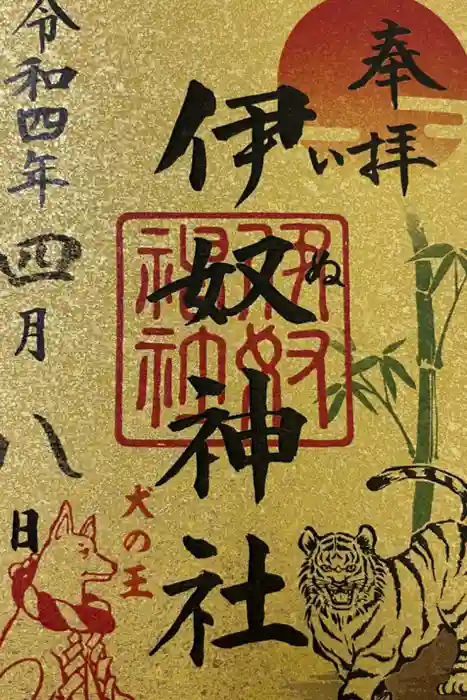 奉拝
伊奴神社
いぬ
伊奴神社
犬の王
令和四年四月八日